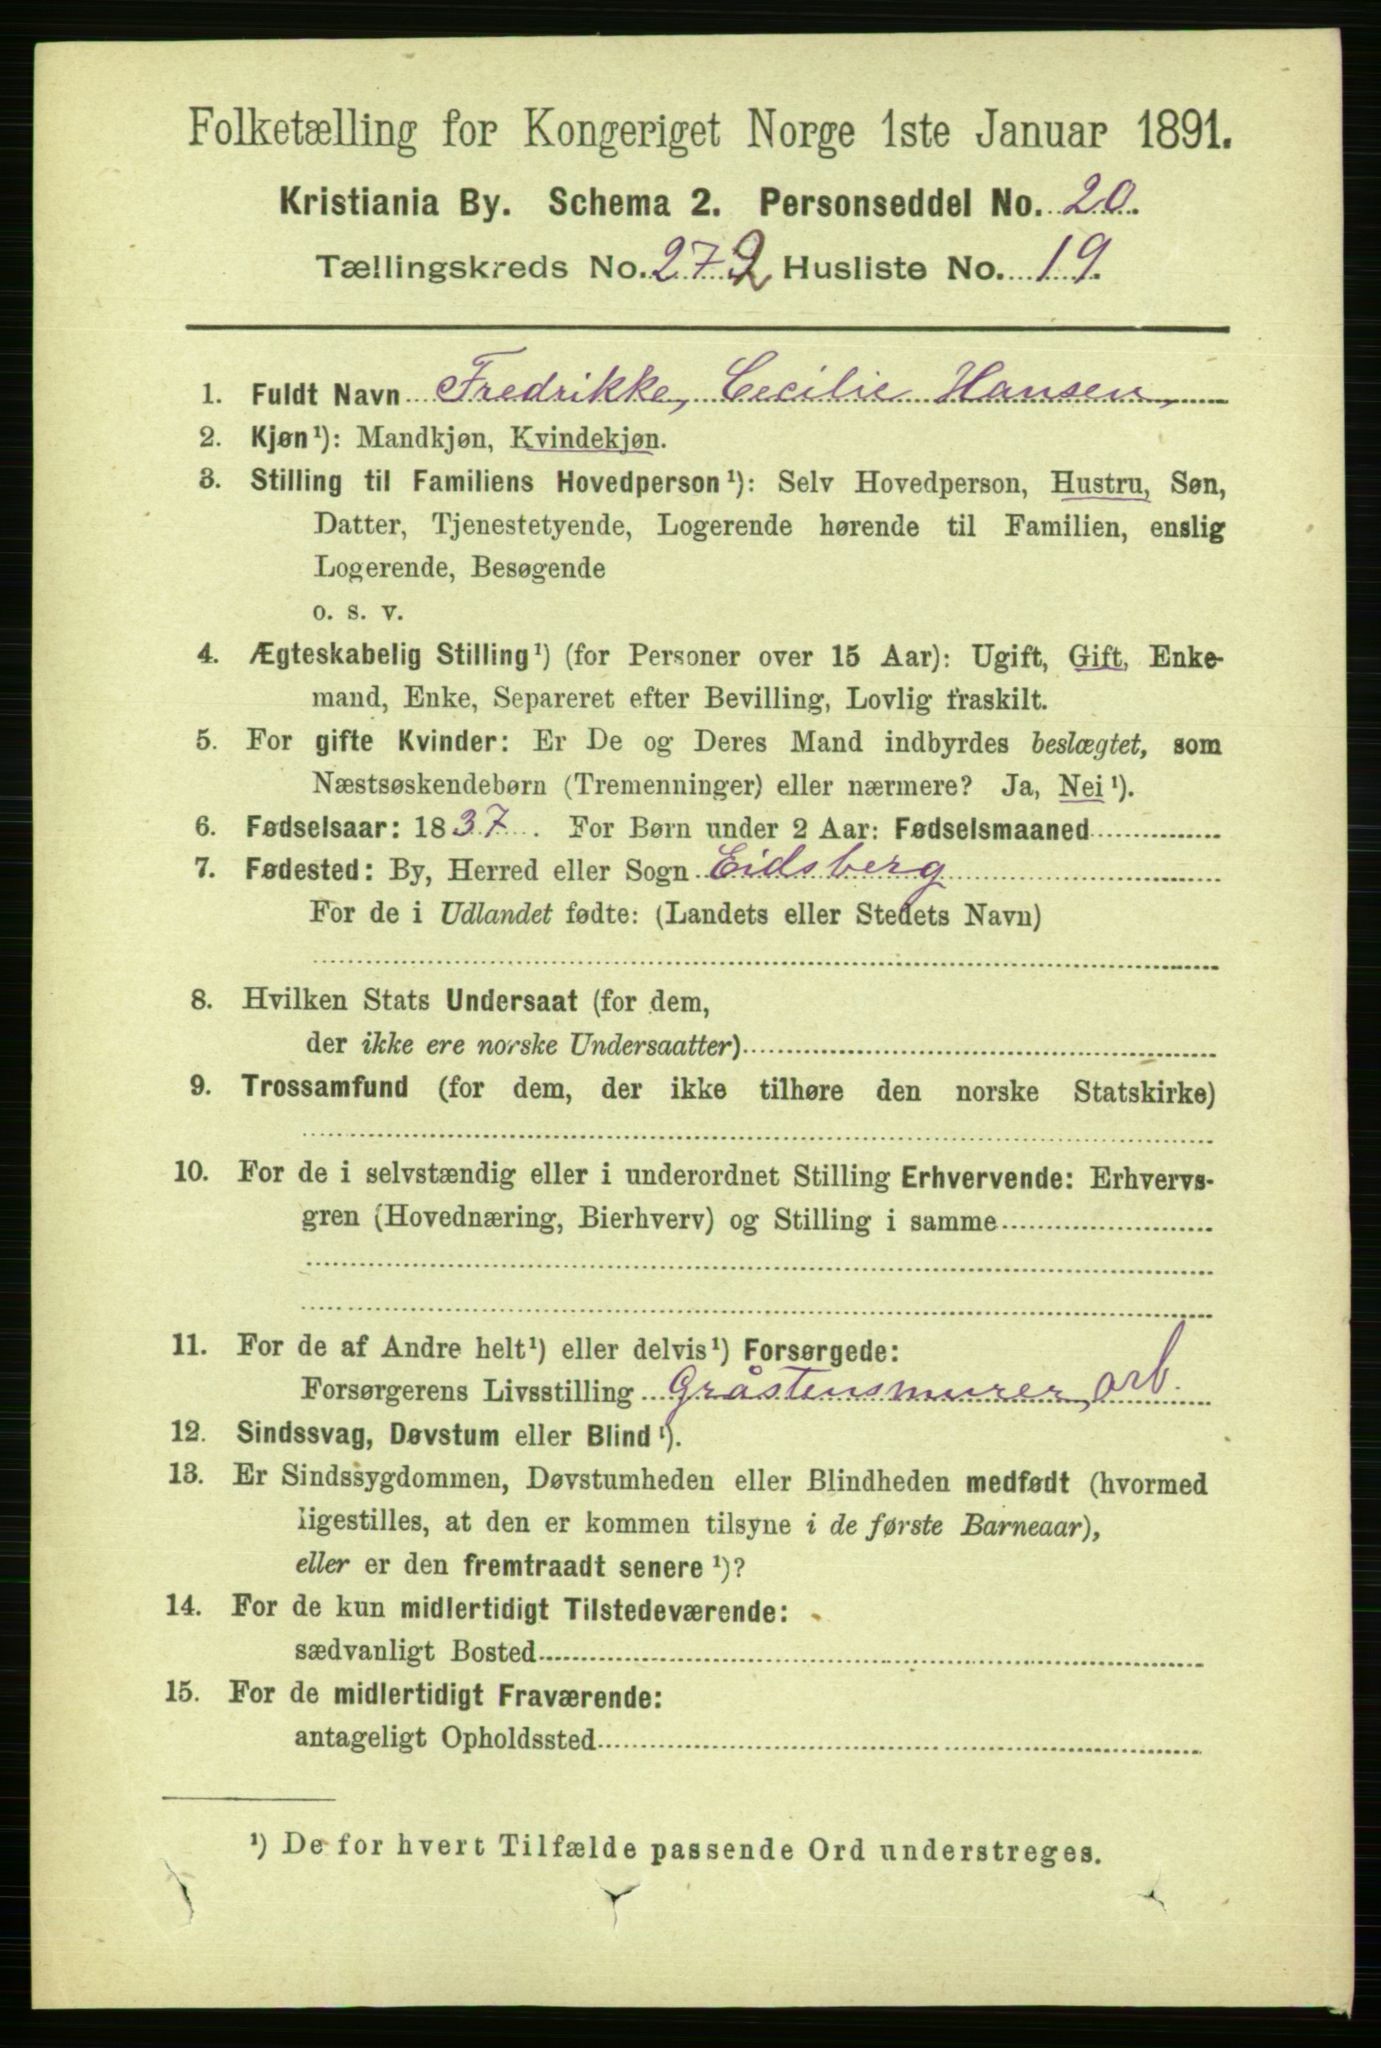 Folketælling for Kongeriget Norge 1ste Januar 1891.
Kristiania By. Schema 2. Personseddel No. 20.
Tællingskreds No. 272 Husliste No. 19.
1. Fuldt Navn Fredrikke, Cecilie Hansen,
2. Kjøn¹): Mandkjøn, Kvindekjøn.
3. Stilling til Familiens Hovedperson¹): Selv Hovedperson, Hustru, Søn,
Datter, Tjenestetyende, Logerende hørende til Familien, enslig
Logerende, Besøgende
o. s. v.
4. Ægteskabelig Stilling¹) (for Personer over 15 Aar): Ugift, Gift, Enke-
mand, Enke, Separeret efter Bevilling, Lovlig fraskilt.
5. For gifte Kvinder: Er De og Deres Mand indbyrdes beslægtet, som
Næstsøskendebørn (Tremenninger) eller nærmere? Ja, Nei¹).
6. Fødselsaar: 1837. For Børn under 2 Aar: Fødselsmaaned
7. Fødested: By, Herred eller Sogn Eidsberg
For de i Udlandet fødte: (Landets eller Stedets Navn)
8. Hvilken Stats Undersaat (for dem,
der ikke ere norske Undersaatter)
9. Trossamfund (for dem, der ikke tilhøre den norske Statskirke)
10. For de i selvstændig eller i underordnet Stilling Erhvervende: Erhvervs-
gren (Hovednæring, Bierhverv) og Stilling i samme
11. For de af Andre helt¹) eller delvis¹) Forsørgede:
Forsørgerens Livsstilling Gråstensmurer, arb.
12. Sindssvag, Døvstum eller Blind¹).
13. Er Sindssygdommen, Døvstumheden eller Blindheden medfødt (hvormed
ligestilles, at den er kommen tilsyne i de første Barneaar),
eller er den fremtraadt senere¹)?
14. For de kun midlertidigt Tilstedeværende:
sædvanligt Bosted
15. For de midlertidigt Fraværende:
antageligt Opholdssted
¹) De for hvert Tilfælde passende Ord understreges.